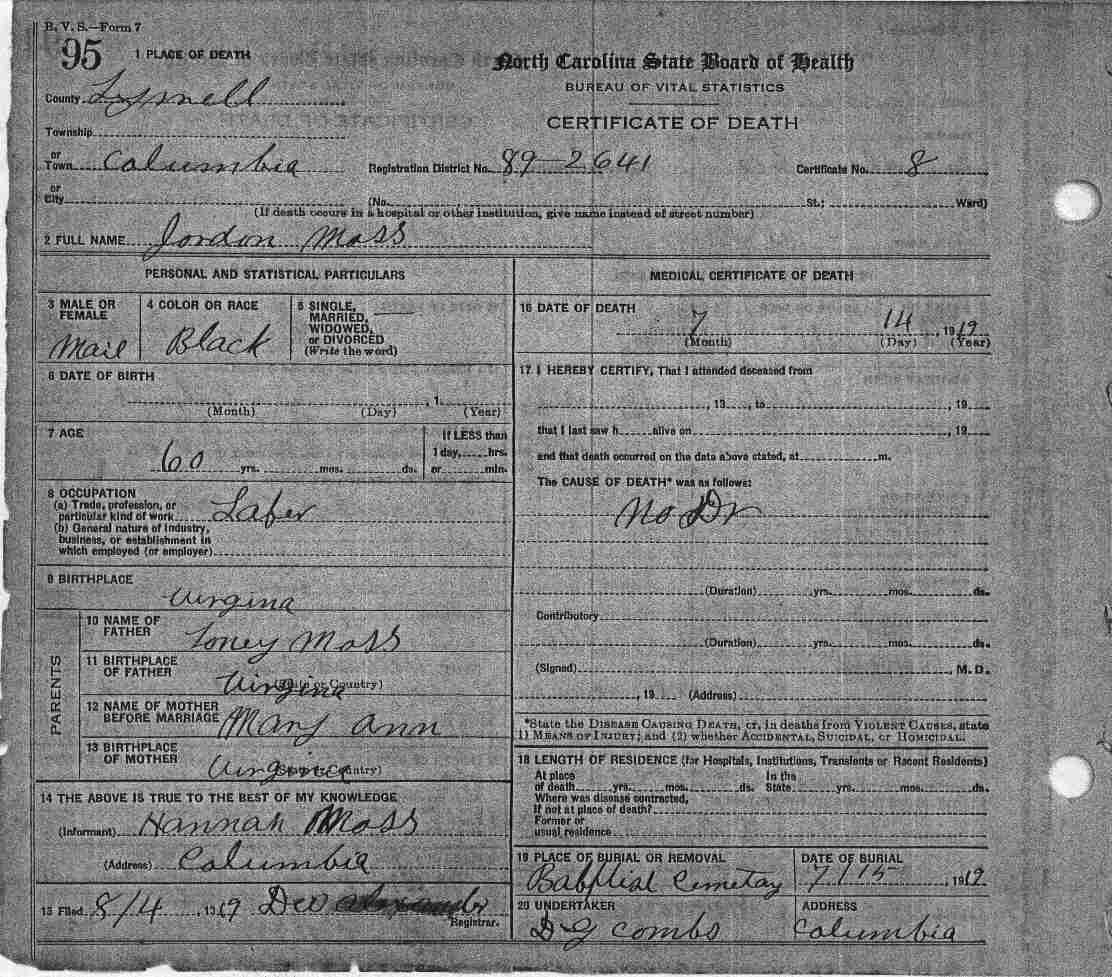 B. V. S.—Form 7
95
1 PLACE OF DEATH
North Carolina State Board of Health
BUREAU OF VITAL STATISTICS
CERTIFICATE OF DEATH
County Tyrrell
Township
or Town Columbia
Registration District No. 89-2641
Certificate No. 8
or City
(No. St.; Ward)
(If death occurs in a hospital or other institution, give name instead of street number)
2 FULL NAME Jordon Moss
PERSONAL AND STATISTICAL PARTICULARS
3 MALE OR FEMALE
Mail
4 COLOR OR RACE
Black
5 SINGLE, MARRIED, WIDOWED, or DIVORCED (Write the word)
6 DATE OF BIRTH
, 1
(Month) (Day) (Year)
7 AGE
60 yrs. mos. ds.
If LESS than 1 day, hrs. or min.
8 OCCUPATION
(a) Trade, profession, or
particular kind of work Laber
(b) General nature of Industry,
business, or establishment in
which employed (or employer)
9 BIRTHPLACE
Virgina
PARENTS
10 NAME OF FATHER Toney Moss
11 BIRTHPLACE OF FATHER Virgina
(State or Country)
12 NAME OF MOTHER BEFORE MARRIAGE Mary Ann
13 BIRTHPLACE OF MOTHER Virginia
(State or Country)
14 THE ABOVE IS TRUE TO THE BEST OF MY KNOWLEDGE
(Informant) Hannah Moss
(Address) Columbia
15 Filed 8/4, 1919
Registrar.
MEDICAL CERTIFICATE OF DEATH
16 DATE OF DEATH
7 14, 1919
(Month) (Day) (Year)
17 I HEREBY CERTIFY, That I attended deceased from
, 19 , to , 19
that I last saw h alive on , 19
and that death occurred on the date above stated, at m.
The CAUSE OF DEATH* was as follows:
No Dr
(Duration) yrs. mos. ds.
Contributory
(Duration) yrs. mos. ds.
(Signed) , M. D.
, 19 (Address)
*State the DISEASE CAUSING DEATH, or, in deaths from VIOLENT CAUSES, state
1) MEANS OF INJURY; and (2) whether ACCIDENTAL, SUICIDAL, or HOMICIDAL.
18 LENGTH OF RESIDENCE (for Hospitals, Institutions, Transients or Recent Residents)
At place of death yrs. mos. ds. In the State yrs. mos. ds.
Where was disease contracted,
If not at place of death?
Former or
usual residence
19 PLACE OF BURIAL OR REMOVAL
Babptist Cemetay
DATE OF BURIAL
7/15, 1919
20 UNDERTAKER
D G Combs
ADDRESS
Columbia